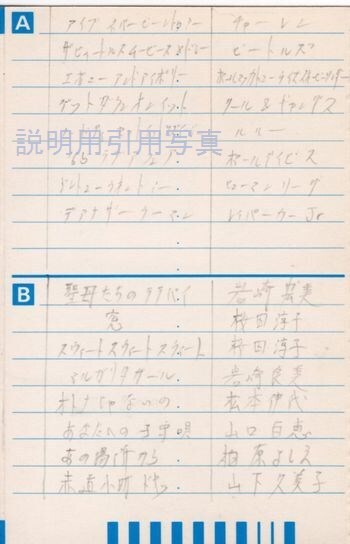 A
アイブ ネバー ビーン トゥ ミー チャーレン
ザ ビートルズ ムービース メドレー ビートルズ
エボニー アンド アイボリー ポールマッカートニー
ゲット ダウン オン イット クール & ギャングス
ルルー
説明用引用写真
65 ラブ アフェア ポールデイビス
ドント ユー ウォント ミー ヒューマン リーグ
アナザー ウーマン レイパーカー Jr
B
聖母たちのララバイ 岩崎宏美
窓 桜田淳子
スウィート スウィート スウィート 桜田淳子
マルガリータ ガール 岩崎良美
オトナじゃないの 松本伊代
あなたへの子守唄 山口百恵
あの場所から 柏原よしえ
赤道小町ドキッ 山下久美子